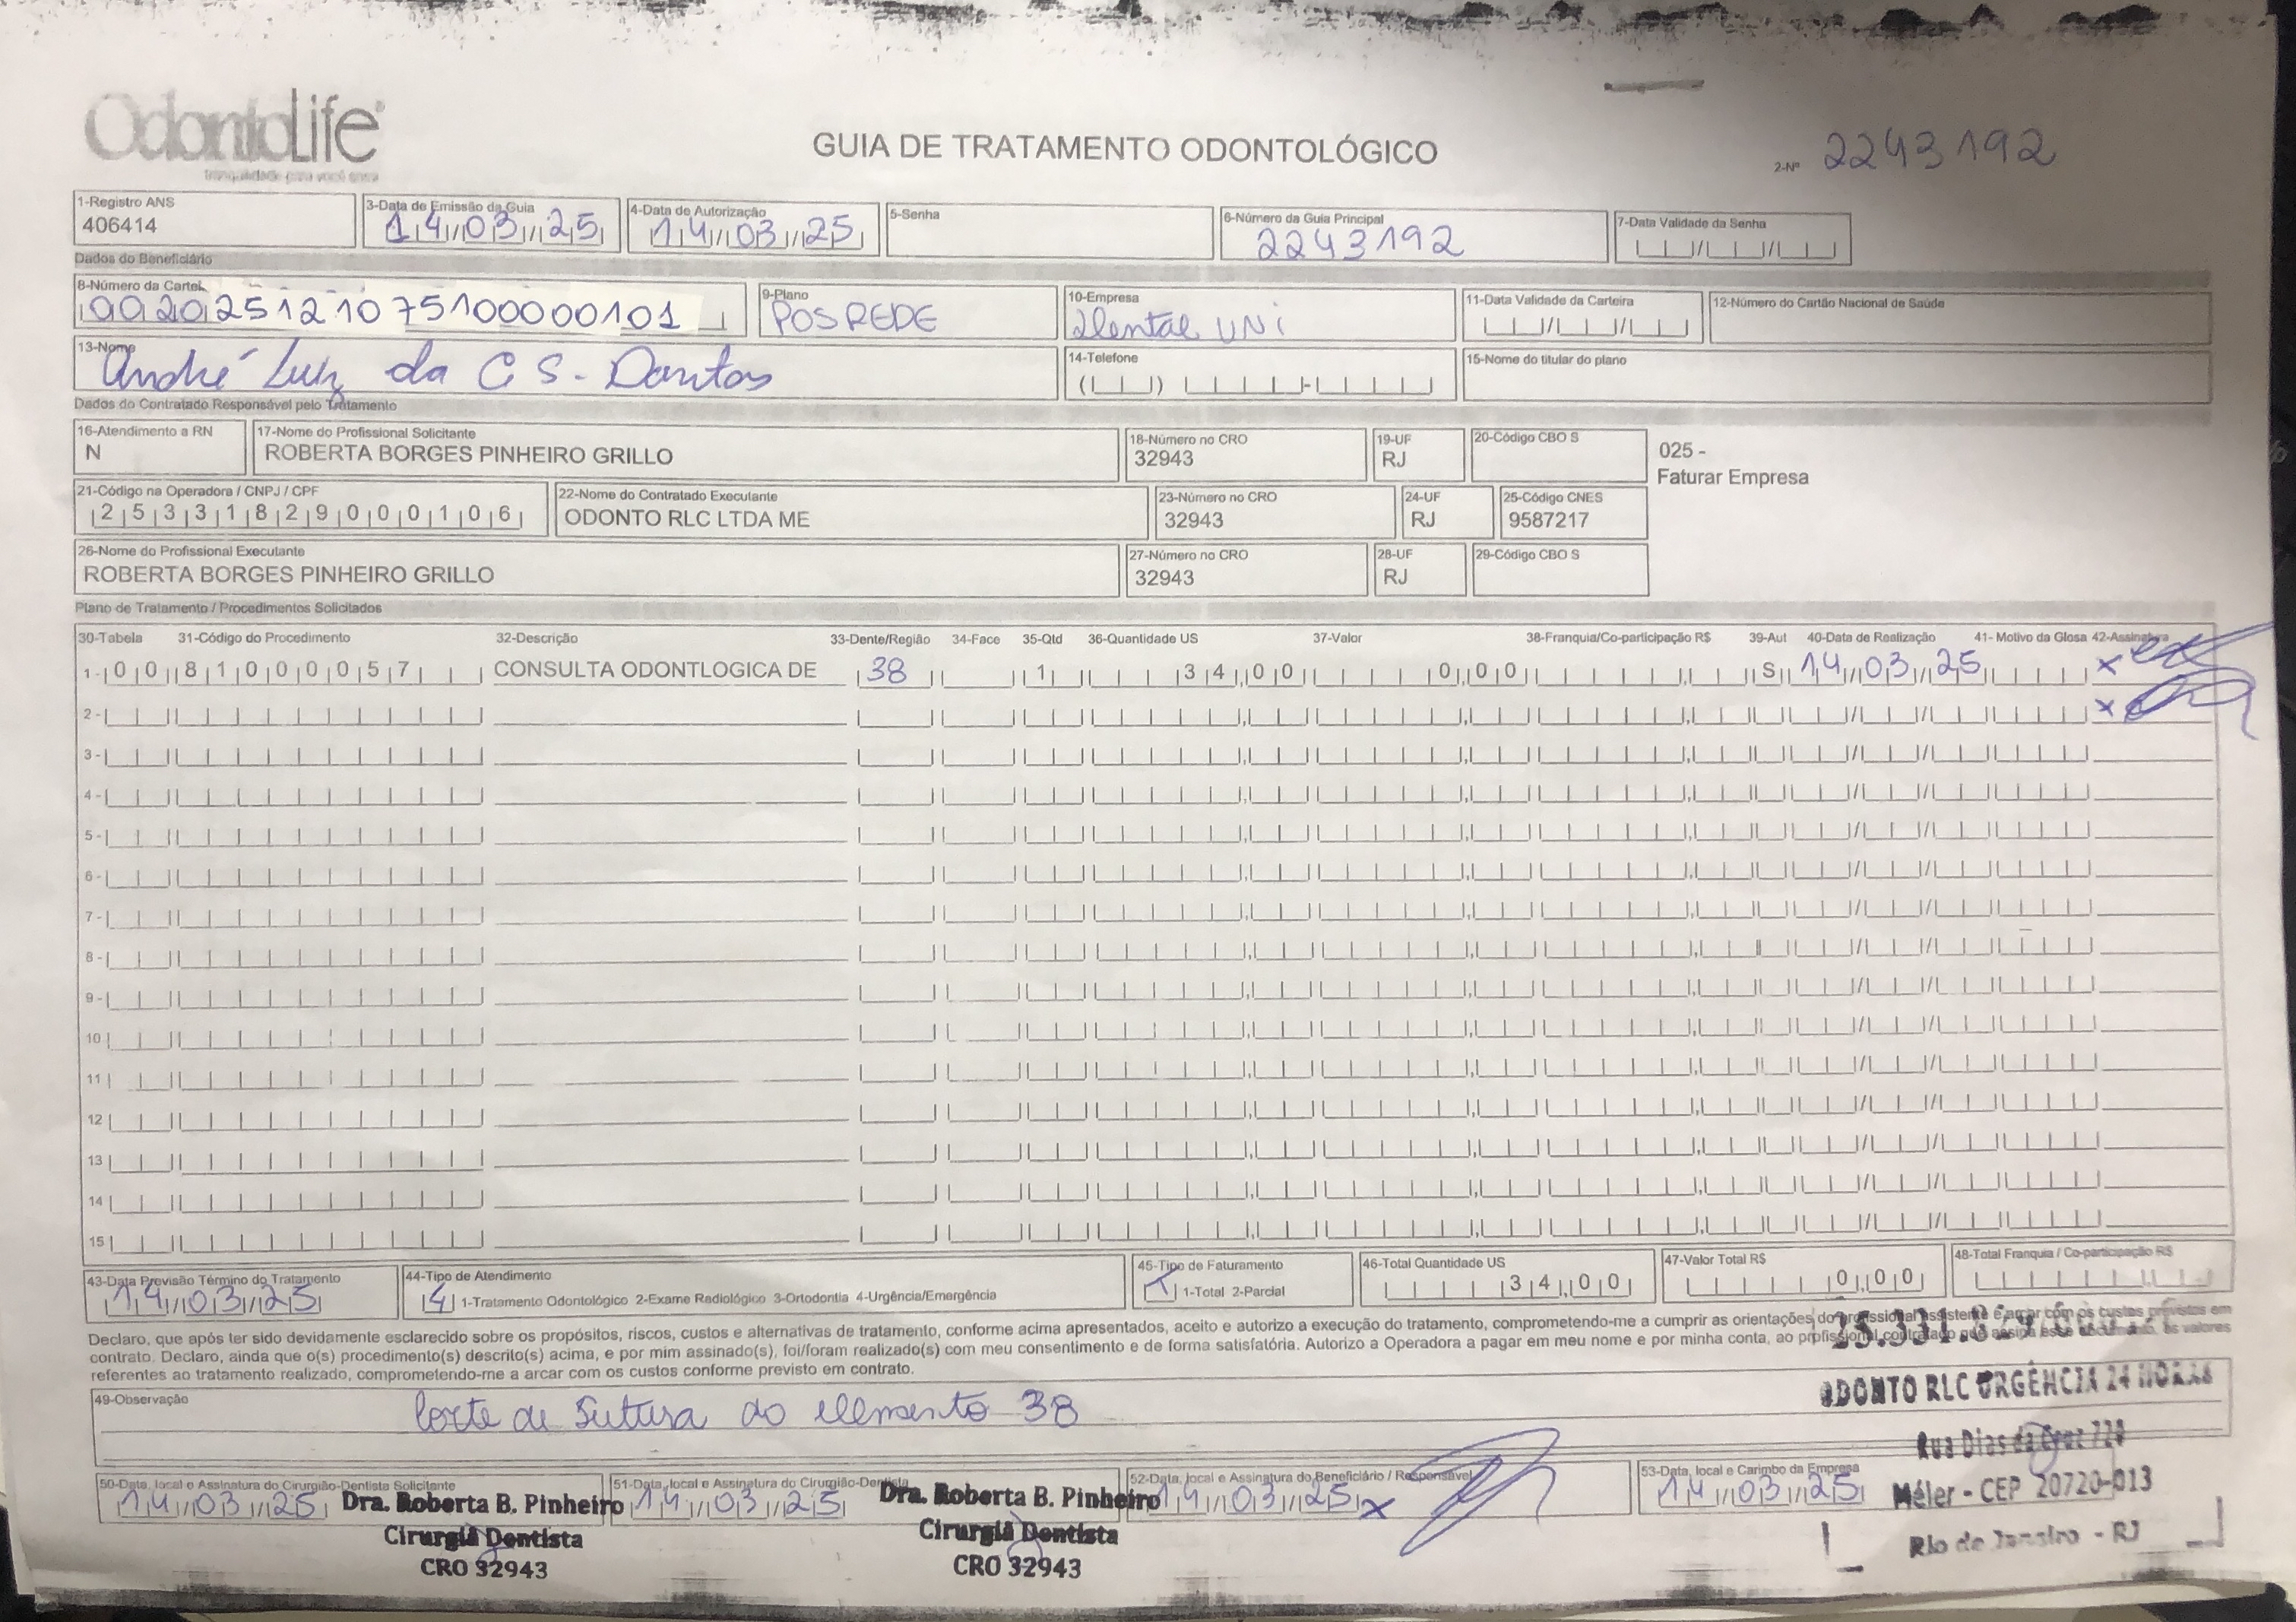 OdontoLife
tranquilidade para você sorrir
GUIA DE TRATAMENTO ODONTOLÓGICO
2-Nº 2243192
1-Registro ANS
406414
3-Data de Emissão da Guia
14/03/25
4-Data de Autorização
14/03/25
5-Senha
6-Número da Guia Principal
2243192
7-Data Validade da Senha
Dados do Beneficiário
8-Número da Carteí
002025121075100000101
9-Plano
POS REDE
10-Empresa
Dental UNi
11-Data Validade da Carteira
12-Número do Cartão Nacional de Saúde
13-Nome
André Luiz da C S. Dantas
14-Telefone
15-Nome do titular do plano
Dados do Contratado Responsável pelo Tratamento
16-Atendimento a RN
N
17-Nome do Profissional Solicitante
ROBERTA BORGES PINHEIRO GRILLO
18-Número no CRO
32943
19-UF
RJ
20-Código CBO S
025 -
Faturar Empresa
21-Código na Operadora / CNPJ / CPF
25331829000106
22-Nome do Contratado Executante
ODONTO RLC LTDA ME
23-Número no CRO
32943
24-UF
RJ
25-Código CNES
9587217
26-Nome do Profissional Executante
ROBERTA BORGES PINHEIRO GRILLO
27-Número no CRO
32943
28-UF
RJ
29-Código CBO S
Plano de Tratamento / Procedimentos Solicitados
30-Tabela 31-Código do Procedimento 32-Descrição 33-Dente/Região 34-Face 35-Qtd 36-Quantidade US 37-Valor 38-Franquia/Co-participação R$ 39-Aut 40-Data de Realização 41- Motivo da Glosa 42-Assinatura
1- 00 81000057 CONSULTA ODONTLOGICA DE 38 1 34,00 0,00 S 14/03/25 x
2- x
3-
4-
5-
6-
7-
8-
9-
10
11
12
13
14
15
43-Data Previsão Término do Tratamento
14/03/25
44-Tipo de Atendimento
4 1-Tratamento Odontológico 2-Exame Radiológico 3-Ortodontia 4-Urgência/Emergência
45-Tipo de Faturamento
1-Total 2-Parcial
46-Total Quantidade US
34,00
47-Valor Total R$
0,00
48-Total Franquia / Co-participação R$
Declaro, que após ter sido devidamente esclarecido sobre os propósitos, riscos, custos e alternativas de tratamento, conforme acima apresentados, aceito e autorizo a execução do tratamento, comprometendo-me a cumprir as orientações do profissional assistente e arcar com os custos previstos em
contrato. Declaro, ainda que o(s) procedimento(s) descrito(s) acima, e por mim assinado(s), foi/foram realizado(s) com meu consentimento e de forma satisfatória. Autorizo a Operadora a pagar em meu nome e por minha conta, ao profissional contratado que assina esse documento, os valores
referentes ao tratamento realizado, comprometendo-me a arcar com os custos conforme previsto em contrato.
49-Observação
Corte de Sutura do elemento 38
ODONTO RLC URGÊNCIA 24 HORAS
Rua Dias da Cruz 728
Méier - CEP 20720-013
Rio de Janeiro - RJ
50-Data, local e Assinatura do Cirurgião-Dentista Solicitante
14/03/25
Dra. Roberta B. Pinheiro
Cirurgiã Dentista
CRO 32943
51-Data, local e Assinatura do Cirurgião-Dentista
14/03/25
Dra. Roberta B. Pinheiro
Cirurgiã Dentista
CRO 32943
52-Data, local e Assinatura do Beneficiário / Responsável
14/03/25 x
53-Data, local e Carimbo da Empresa
14/03/25